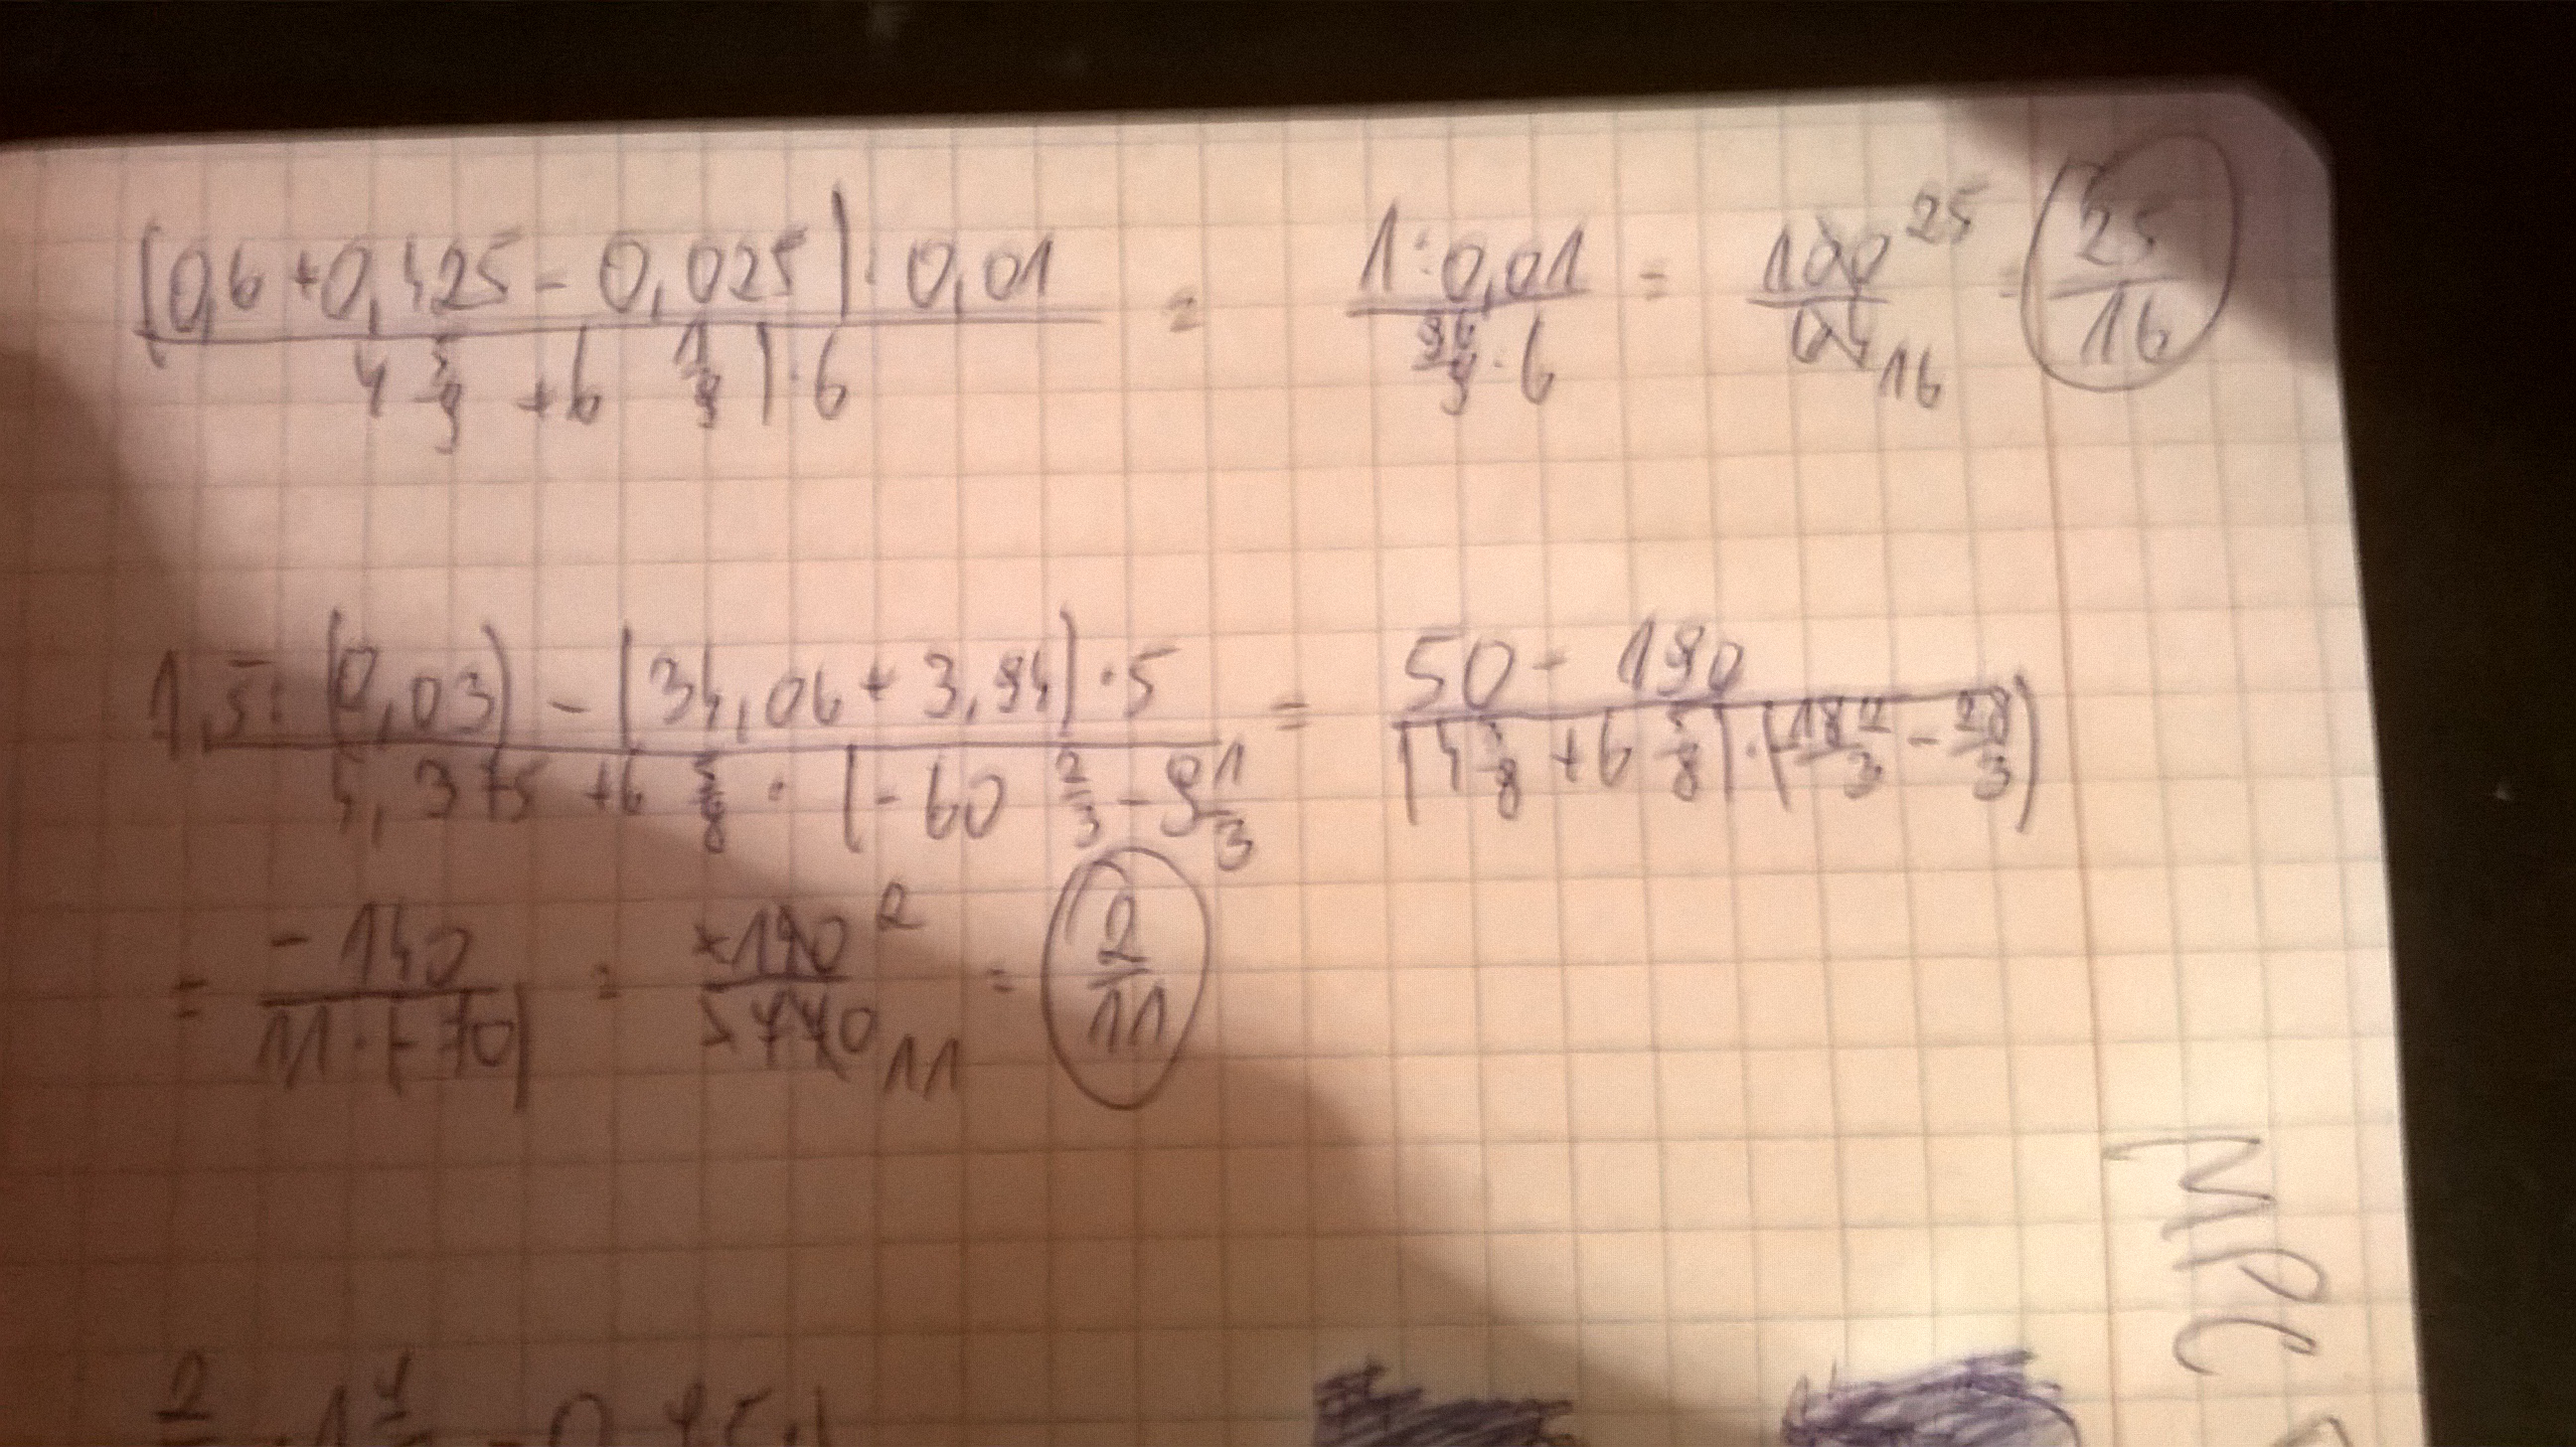 (0,6 + 0,425 - 0,025) : 0,01 / 4 5/9 + 6 1/9) · 6 = 1 : 0,01 / 96/9 · 6 = 100 25 / 64 16 = 25/16
1,5 : (0,03) - (34,06 + 3,94) · 5 / 4,375 + 6 5/8 · (-60 2/3 - 9 1/3 = 50 - 190 / (4 3/8 + 6 5/8) · (-182/3 - 28/3)
= -140 / 11 · (-70) = -140 2 / -770 11 = 2/11
MPC